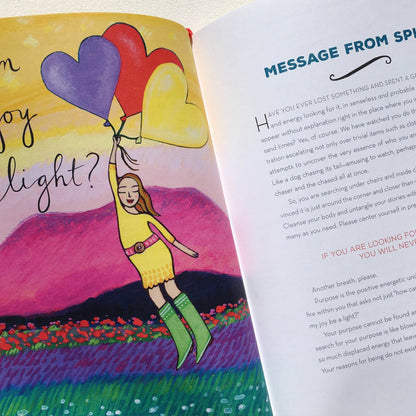 joy
light?
MESSAGE FROM
HAVE YOU EVER LOST SOMETHING AND SPENT A
and energy looking for it, in senseless and probable
appear without explanation right in the place where you
sand times? Yes, of course. We have watched you do th
tration escalating not only over trivial items such as
attempts to uncover the very essence of who you are
Like a dog chasing its tail—amusing to watch, perhap
chaser and the chased all at once.
So, you are searching under chairs and inside
vinced it is just around the corner and then close
Cleanse your body and untangle your stories
many as you need. Please center yourself in pre
IF YOU ARE LOOKING FO
YOU WILL NEVE
Another breath, please.
Purpose is the positive energetic
fire within you that asks not just "how ca
my joy be a light?"
Your purpose cannot be found
search for your purpose is like blom
so much displaced energy that leave
Your reasons for being do not exist